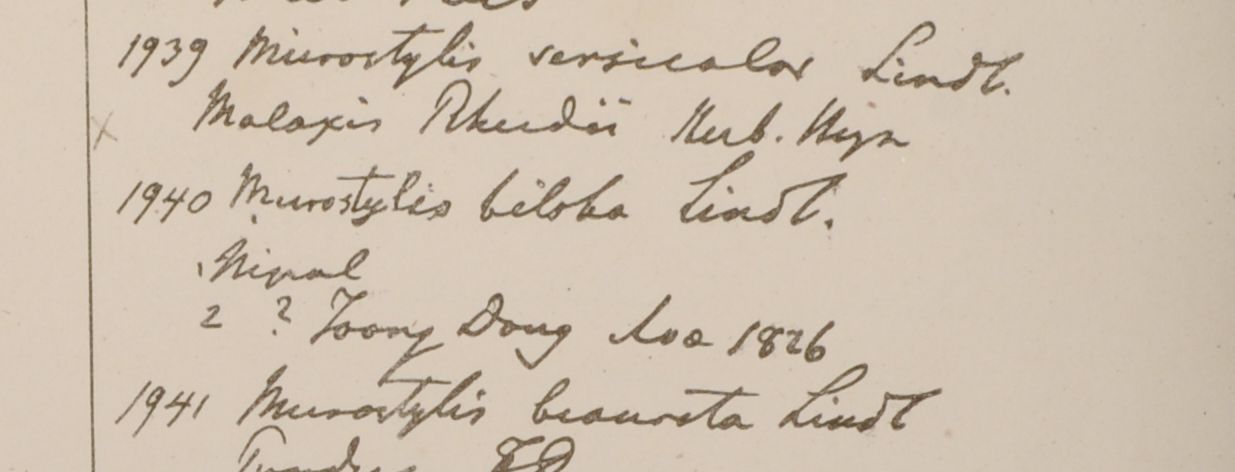 1939 Microstylis versicolor Lindl.
Malaxis Rheedii Herb. Heyn
1940 Microstylis biloba Lindl.
Nipal
2 ? Toong Dong Ava 1826
1941 Microstylis Lindl